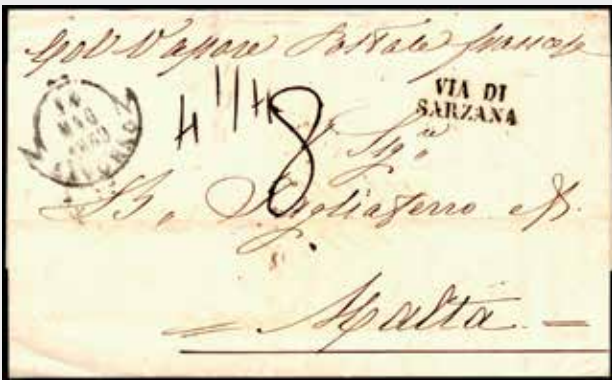 Col Vapore Postale francese
VIA DI
SARZANA
14
MAG
1860
LIVORNO
4 1/4
8
Sig.re
B. Tagliaferro & f.
Malta